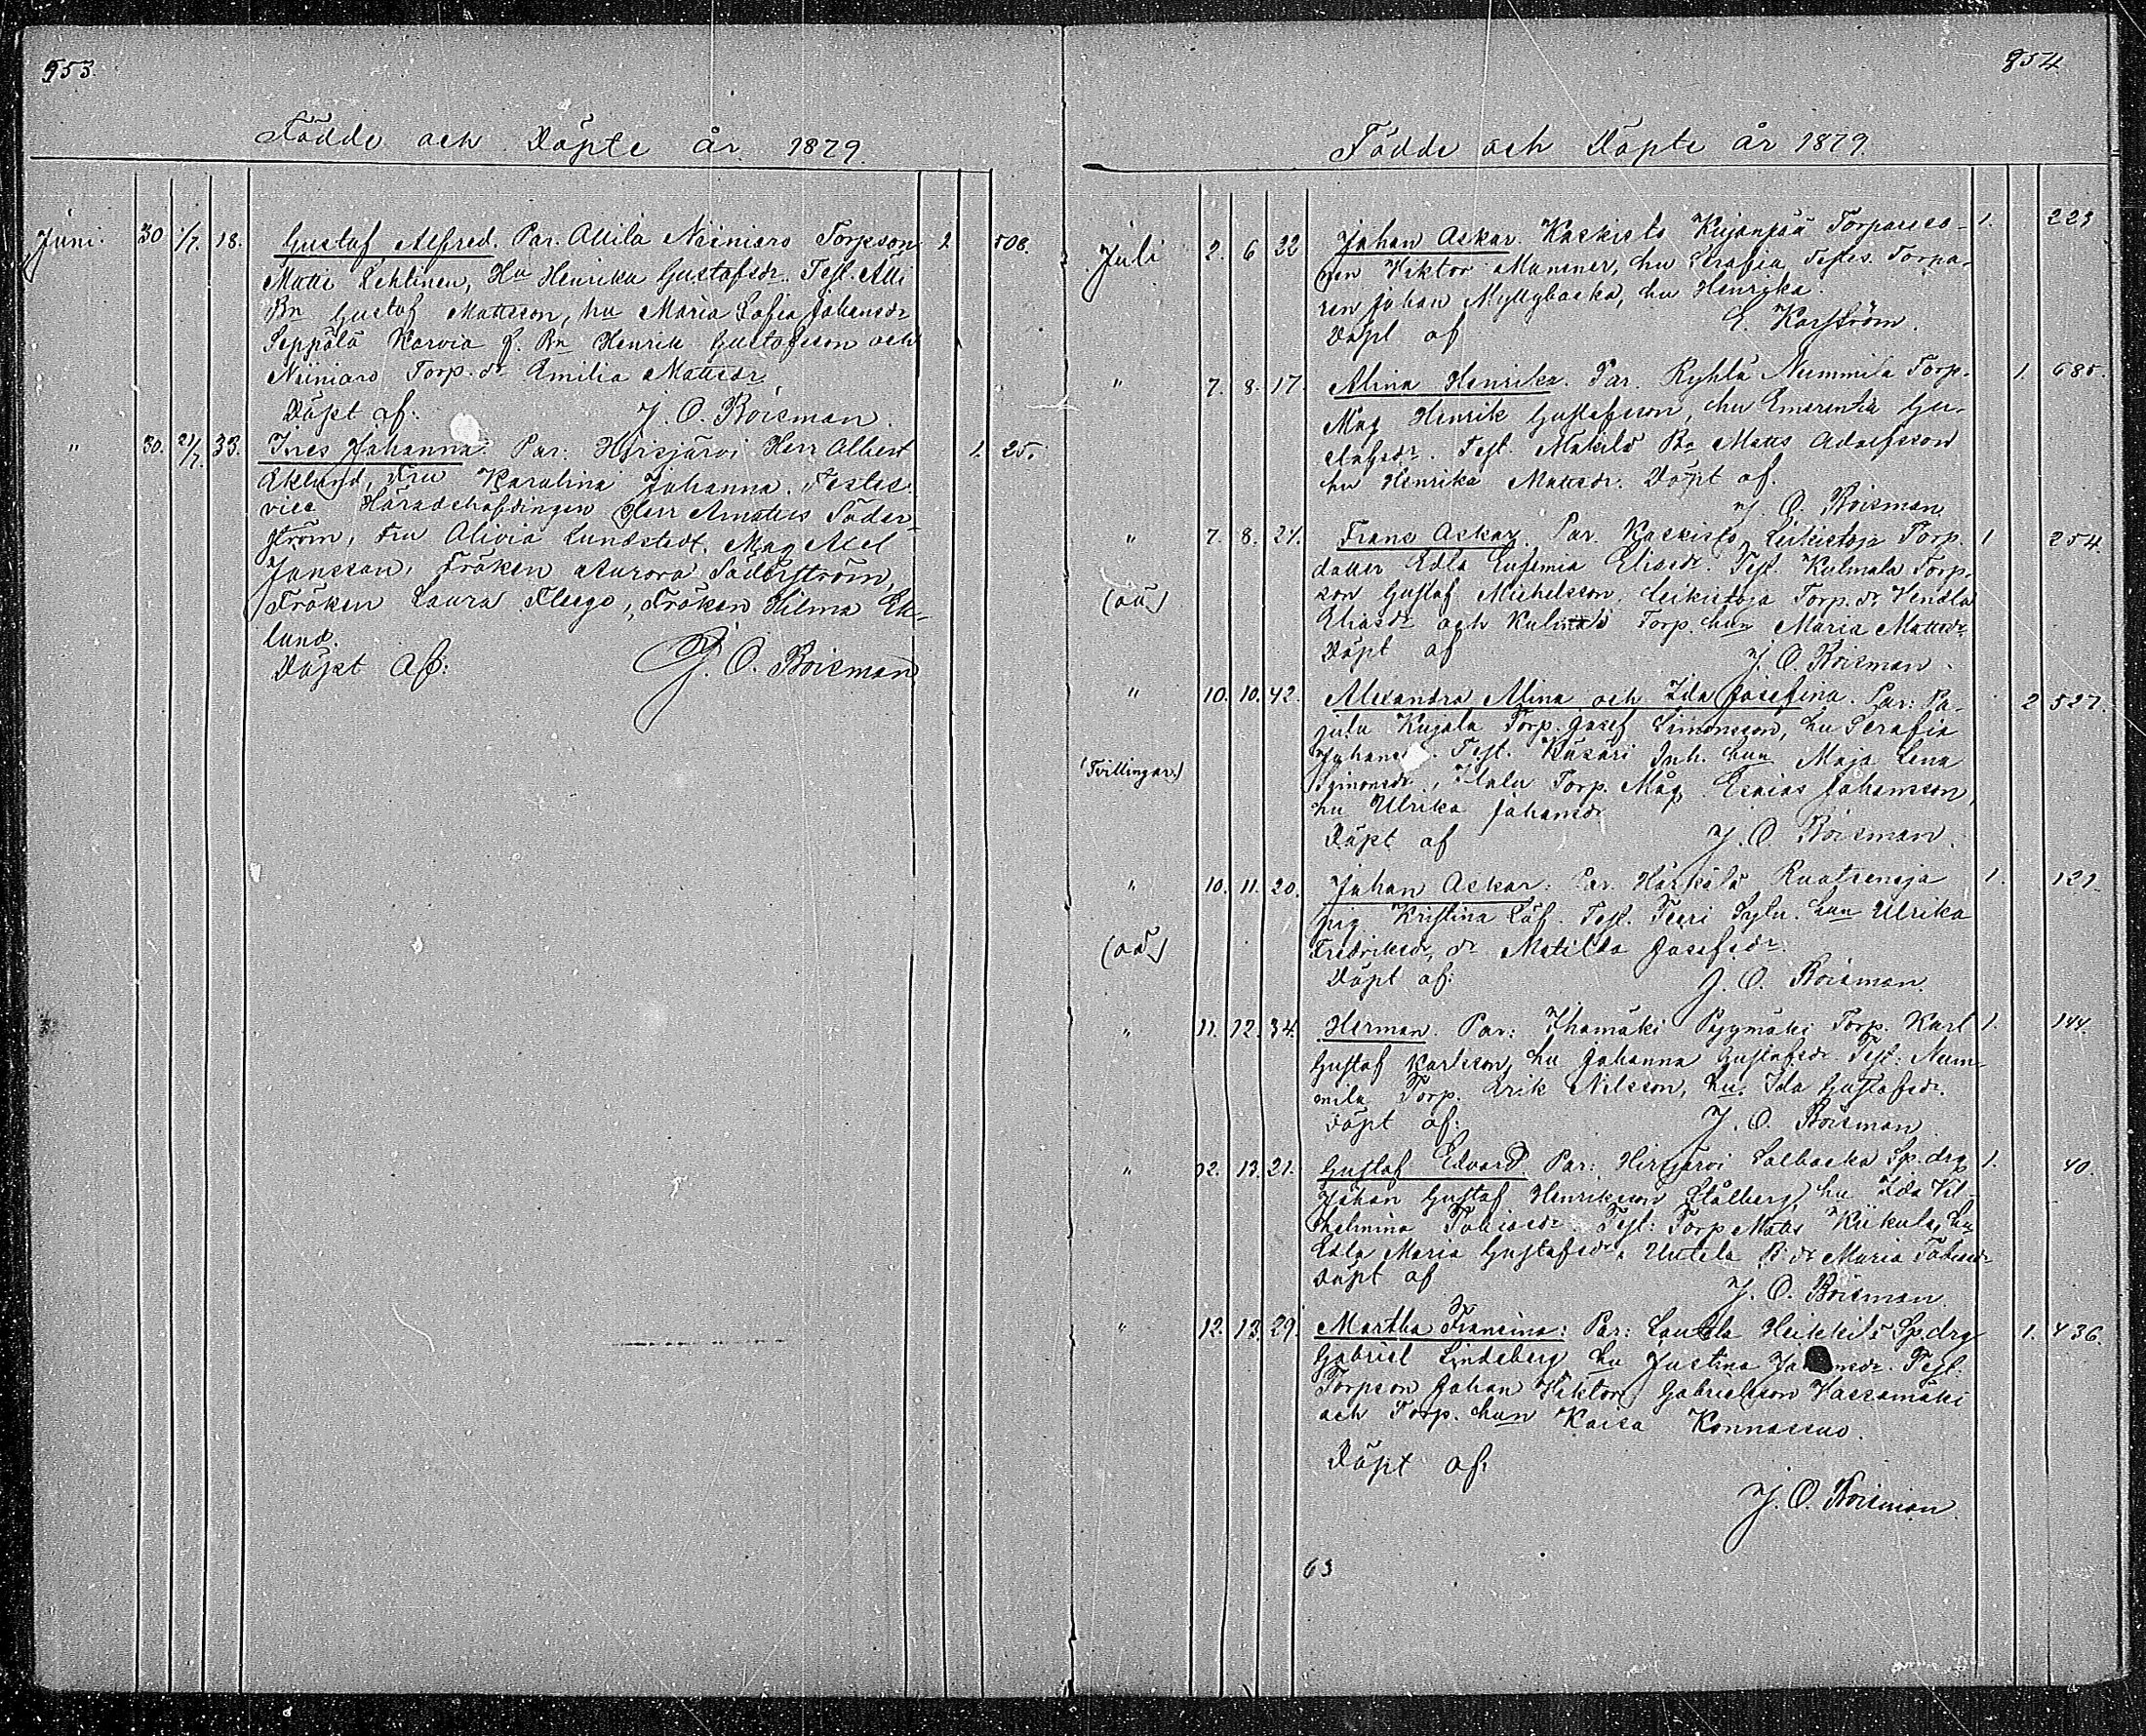 553.
Födde och Döpte år 1879.
Juni. 30 1/7. 18. Gustaf Alfred. Par. Attila Niiniaro Torpson 1. 508.
Matti Lehtinen, Hu Henrika Gustafsdr. Test. Alli
Bn Gustaf Mattsson, hu Maria Sofia Johansdr
Seppälä Karvia f. Bn Henrik Gustafsson och
Niiniaro Torp. dr Amilia Mattsdr.
Döpt af: J. O. Roisman.
" 30. 21/7. 33. Ines Johanna. Par: Hirsjärvi Herr Albert 1. 25.
Eklund, Fru Karolina Johanna. Testes:
vice Häradshöfdingen Herr Amatus Söder-
ström, Fru Olivia Lundstedt. Mag Axel
Jansson, Fröken Aurora Söderström,
Fröken Laura Fleege, Fröken Hilma Ek-
lund.
Döpt af: J. O. Roisman
854
Födde och Döpte år 1879.
Juli 2. 6 22 Johan Oskar. Kaskisto Kujanpää Torpareso- 1. 223
nen Viktor Manener, hu Serafia, Testes. Torpa-
ren Johan Myllybacka, hu Henrika.
Döpt af E. Karström.
" 7. 8. 17. Alina Henrika. Par. Ryhtä Nummila Torp. 1. 685.
Mag Henrik Gustafsson, hu Emerentia Gu-
stafsdr. Test. Mäkilä Bn Matts Adolfsson
hu Henrika Mattsdr. Döpt af.
J. O. Roisman
" 7. 8. 24. Frans Oskar. Par. Kaskisto Leikistoja Torp. 1 254.
dotter Edla Eufemia Eliasdr. Test. Kulmala Torp.
(oä) son Gustaf Michelsson, Leikistoja Torp. dr Hendla
Eliasdr och Kulmala Torp. hun Maria Mattsdr
Döpt af J. O. Roisman.
" 10. 10. 42. Alexandra Alina och Ida Josefina. Par: Pa- 2 527.
jula Kujala Torp. Josef Simonsson, hu Serafia
(Tvillingar) Johans. Test. Inh. hun Maja Lena
Simonsdr, Torp. Måg Esaias Johansson,
hu Ulrika Johansdr
Döpt af J. O. Roisman.
" 10. 11. 20. Johan Oskar: Par. Härkälä Ruatsinoja 1. 121.
pig Kristina Löf. Test. Teeri hun Ulrika
(oä) Fredriksdr, dr Matilda Josefsdr.
Döpt af: J. O. Roisman.
" 11. 12. 34. Herman. Par: Ihamäki Pyymäki Torp. Karl 1. 144.
Gustaf Karlsson, hu Johanna Gustafsdr. Test: Num-
mila Torp. Erik Nilsson, hu. Ida Gustafsdr.
Döpt af: J. O. Roisman
" 12. 13. 21. Gustaf Edvard. Par: Hirsjärvi Salbacka Sp.drg 1. 40.
Johan Gustaf Henriksson Stålberg, hu Ida Vil-
helmina Tobiasdr. Test: Torp Matts Kiikala, hu
Edla Maria Gustafsdr, Uutela B. dr Maria Tobiasdr
Döpt af J. O. Roisman.
" 12. 13. 29. Martha Fransina: Par: Lautela Heikkilä Sp.drg 1. 436
Gabriel Lindeberg hu Justina Johansdr. Test:
Torpson Johan Viktor Gabrielsson Vassamäki
och Torp. hun Kaisa Konnassuo.
Döpt af:
J. O. Roisman.
63